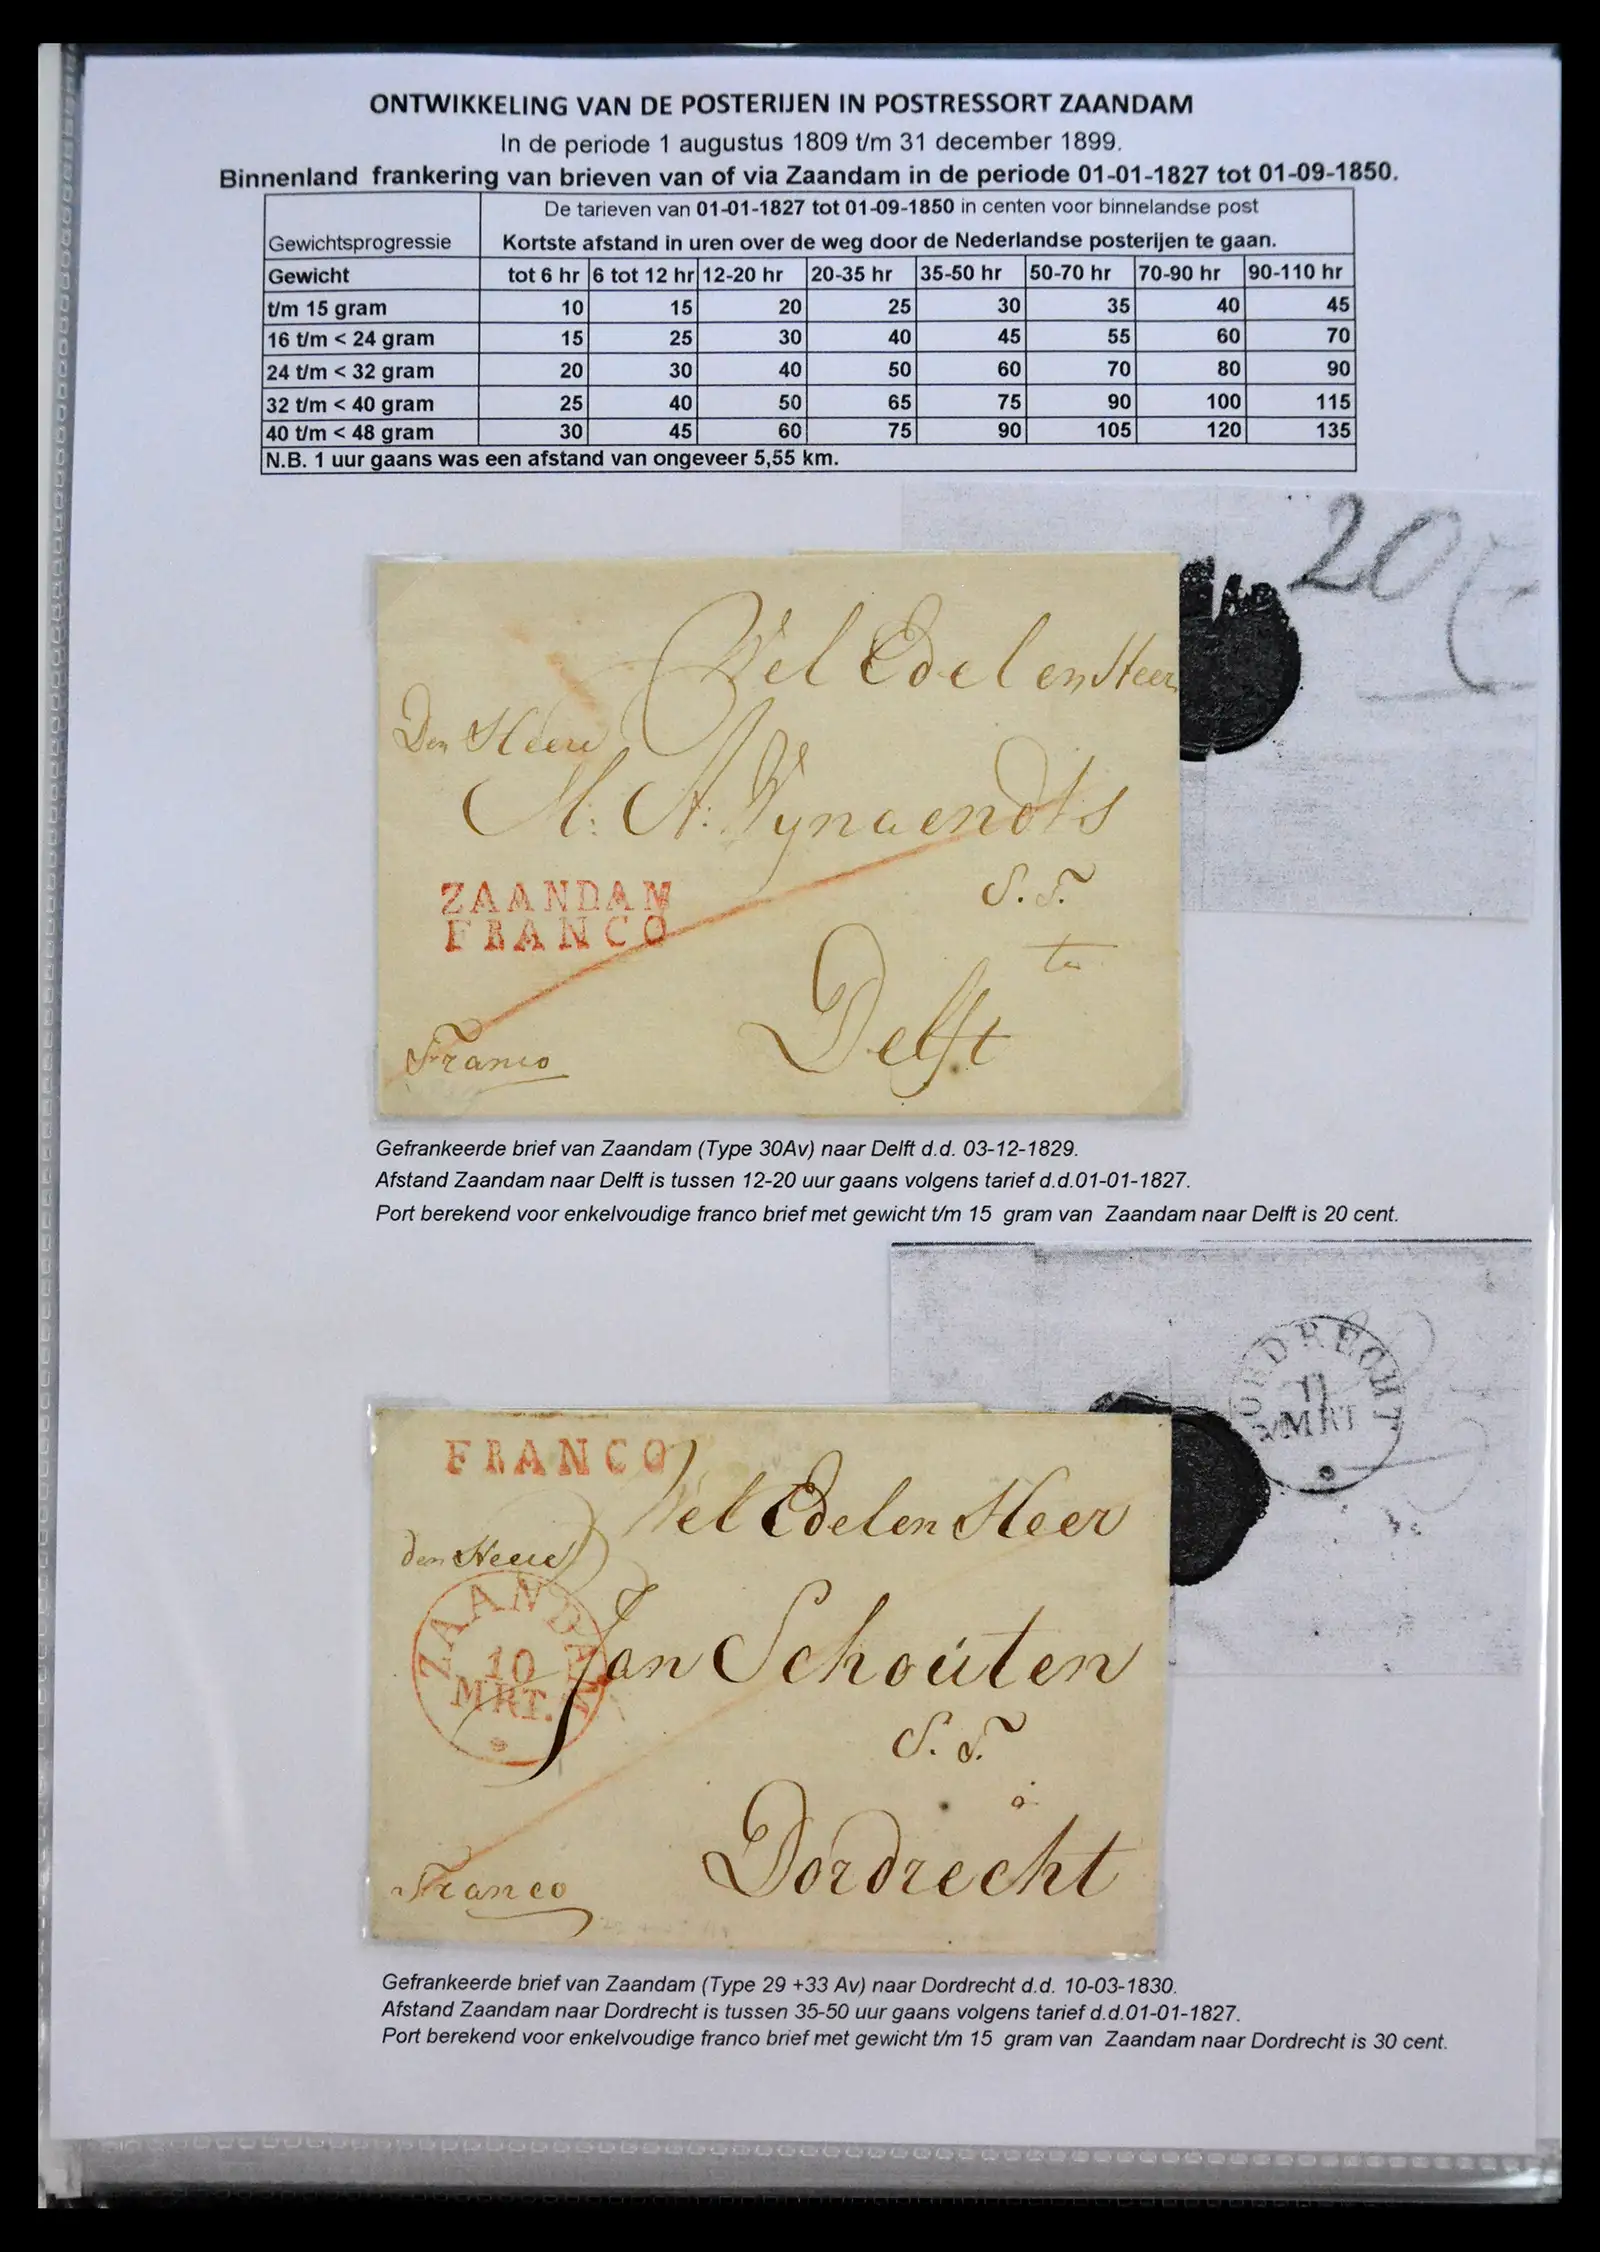 ONTWIKKELING VAN DE POSTERIJEN IN POSTRESSORT ZAANDAM
In de periode 1 augustus 1809 t/m 31 december 1899.
Binnenland frankering van brieven van of via Zaandam in de periode 01-01-1827 tot 01-09-1850.
De tarieven van 01-01-1827 tot 01-09-1850 in centen voor binnelandse post
Gewichtsprogressie Kortste afstand in uren over de weg door de Nederlandse posterijen te gaan.
Gewicht tot 6 hr 6 tot 12 hr 12-20 hr 20-35 hr 35-50 hr 50-70 hr 70-90 hr 90-110 hr
t/m 15 gram 10 15 20 25 30 35 40 45
16 t/m < 24 gram 15 25 30 40 45 55 60 70
24 t/m < 32 gram 20 30 40 50 60 70 80 90
32 t/m < 40 gram 25 40 50 65 75 90 100 115
40 t/m < 48 gram 30 45 60 75 90 105 120 135
N.B. 1 uur gaans was een afstand van ongeveer 5,55 km.
20
Wel Edelen Heer
Den Heere
M: A: Wynaendts
ZAANDAM
FRANCO
S. T.
te
Delft
Franco
Gefrankeerde brief van Zaandam (Type 30Av) naar Delft d.d. 03-12-1829.
Afstand Zaandam naar Delft is tussen 12-20 uur gaans volgens tarief d.d.01-01-1827.
Port berekend voor enkelvoudige franco brief met gewicht t/m 15 gram van Zaandam naar Delft is 20 cent.
DORDRECHT
11
MRT
FRANCO
Wel Edelen Heer
den Heere
ZAANDAM
10
MRT.
Jan Schouten
S. T.
a
Dordrecht
Franco
Gefrankeerde brief van Zaandam (Type 29 +33 Av) naar Dordrecht d.d. 10-03-1830.
Afstand Zaandam naar Dordrecht is tussen 35-50 uur gaans volgens tarief d.d.01-01-1827.
Port berekend voor enkelvoudige franco brief met gewicht t/m 15 gram van Zaandam naar Dordrecht is 30 cent.